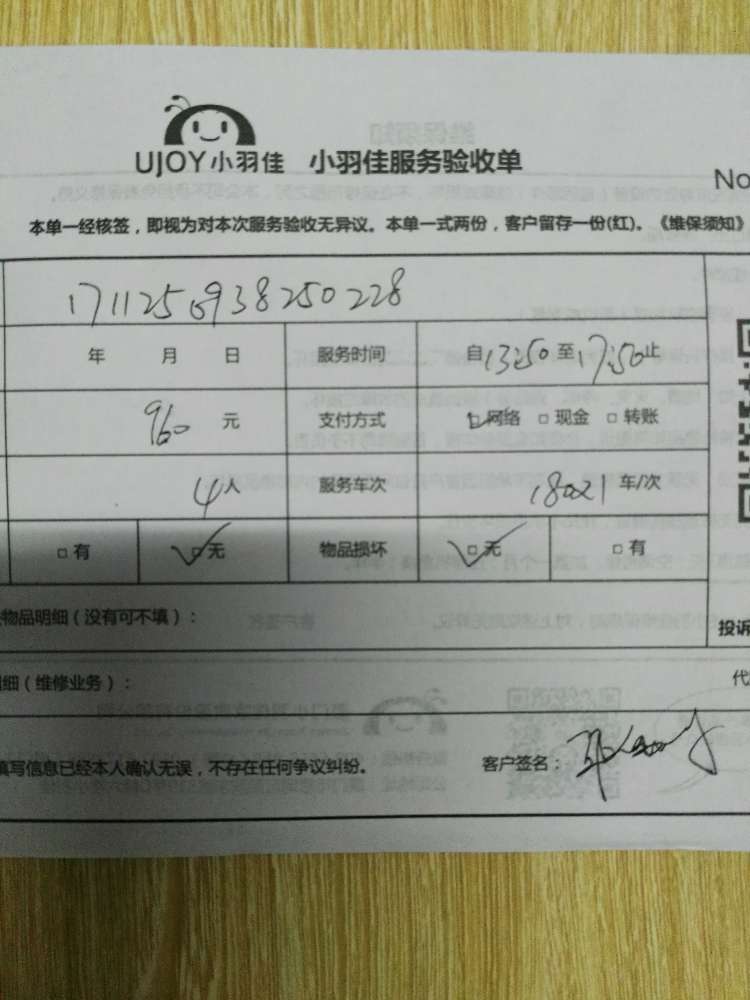 UJOY小羽佳 小羽佳服务验收单
No
本单一经核签，即视为对本次服务验收无异议。本单一式两份，客户留存一份(红)。《维保须知》
1711250938250228
年 月 日 服务时间 自13:50至17:50止
960 元 支付方式 网络 现金 转账
4人 服务车次 18021 车/次
有 无 物品损坏 无 有
物品明细（没有可不填）：
投诉
细（维修业务）：
代
填写信息已经本人确认无误，不存在任何争议纠纷。 客户签名：